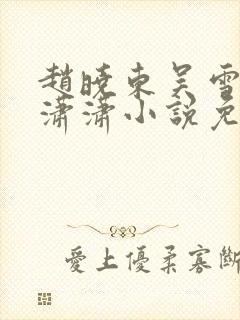 趙曉東吴雪
瀟瀟小說免
愛上優柔寡斷